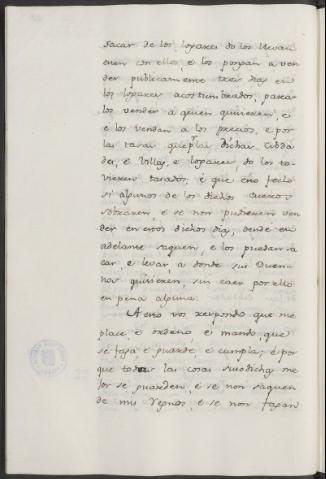 sacar de los logares do los llevan
eren con ellos, e los pongan a ven
der publicamente tres dias en
los logares acostumbrados, para
los vender a quien quisieren, e
e los vendan a los precios, e por
las tasas que las dichas cibda
des, e Villas, e logares, do los to
vieren tasados; e que esto fecho
si algunos de los dichos aceros
sobraren, e se non pudieren ven
der en estos dichos dias, dende en
adelante saquen, e los puedan sa
car, e levar, a donde sus Dueñ
nos quisieren, sin caer por ello
en pena alguna.
A esto vos respondo que me
place, e ordeno e mando, que
se faga e guarde e cumpla; e por
que todas las cosas susodichas me
jor se guarden, e se non saquen
de mis Regnos, e se non fagan